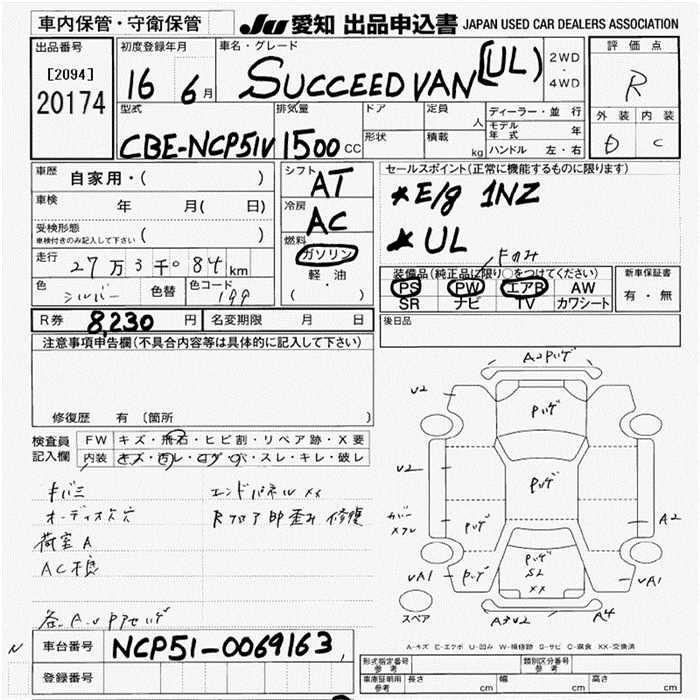 車内保管・守衛保管
JU 愛知 出品申込書 JAPAN USED CAR DEALERS ASSOCIATION
出品番号
[2094]
20174
初度登録年月
16 6月
車名・グレード
SUCCEED VAN (UL)
2WD
・
4WD
評価点
R
外装 内装
D C
型式
CBE-NCP51V
排気量
1500 CC
ドア
形状
定員 人
積載 kg
ディーラー・並行
モデル年式 年
ハンドル 左・右
車歴 自家用・( )
車検 年 月( 日)
受検形態
車検付きのみ記入して下さい ( )
走行 27万3千084km
色 シルバー 色替 色コード 199
シフト AT
冷房 AC
燃料
ガソリン
軽・油
( ・ )
セールスポイント(正常に機能するものに限ります)
★E/g 1NZ
★UL
Fのみ
装備品(純正品に限り○をつけてください)
PS PW エアB AW
SR ナビ TV カワシート
新車保証書
有・無
R券 8,230円 名変期限 月 日
後日品
注意事項申告欄(不具合内容等は具体的に記入して下さい)
修復歴 有 (箇所 )
検査員記入欄
FW キズ・飛石・ヒビ割・リペア跡・X要
内装 キズ・汚レ・コゲ・穴・スレ・キレ・破レ
キバミ
オーディオ欠穴
荷室A
AC不良
エンドパネルXX
Rフロア即歪み 修復
各A・UPアセハゲ
N
車台番号 NCP51-0069163
登録番号
A2Pハゲ
U2
Pハゲ
U2
Pハゲ
カバー
Xワレ
Pハゲ
A2
UA1
Pハゲ
Pハゲ
S2
XX
UA1
スペア
A3U2
A4
A-キズ E-エクボ U-凹み W-補修跡 S-サビ C-腐食 XX-交換済
形式指定番号 参考
類別区分番号 参考
車庫証明用 参考
長さ cm
幅 cm
高さ cm